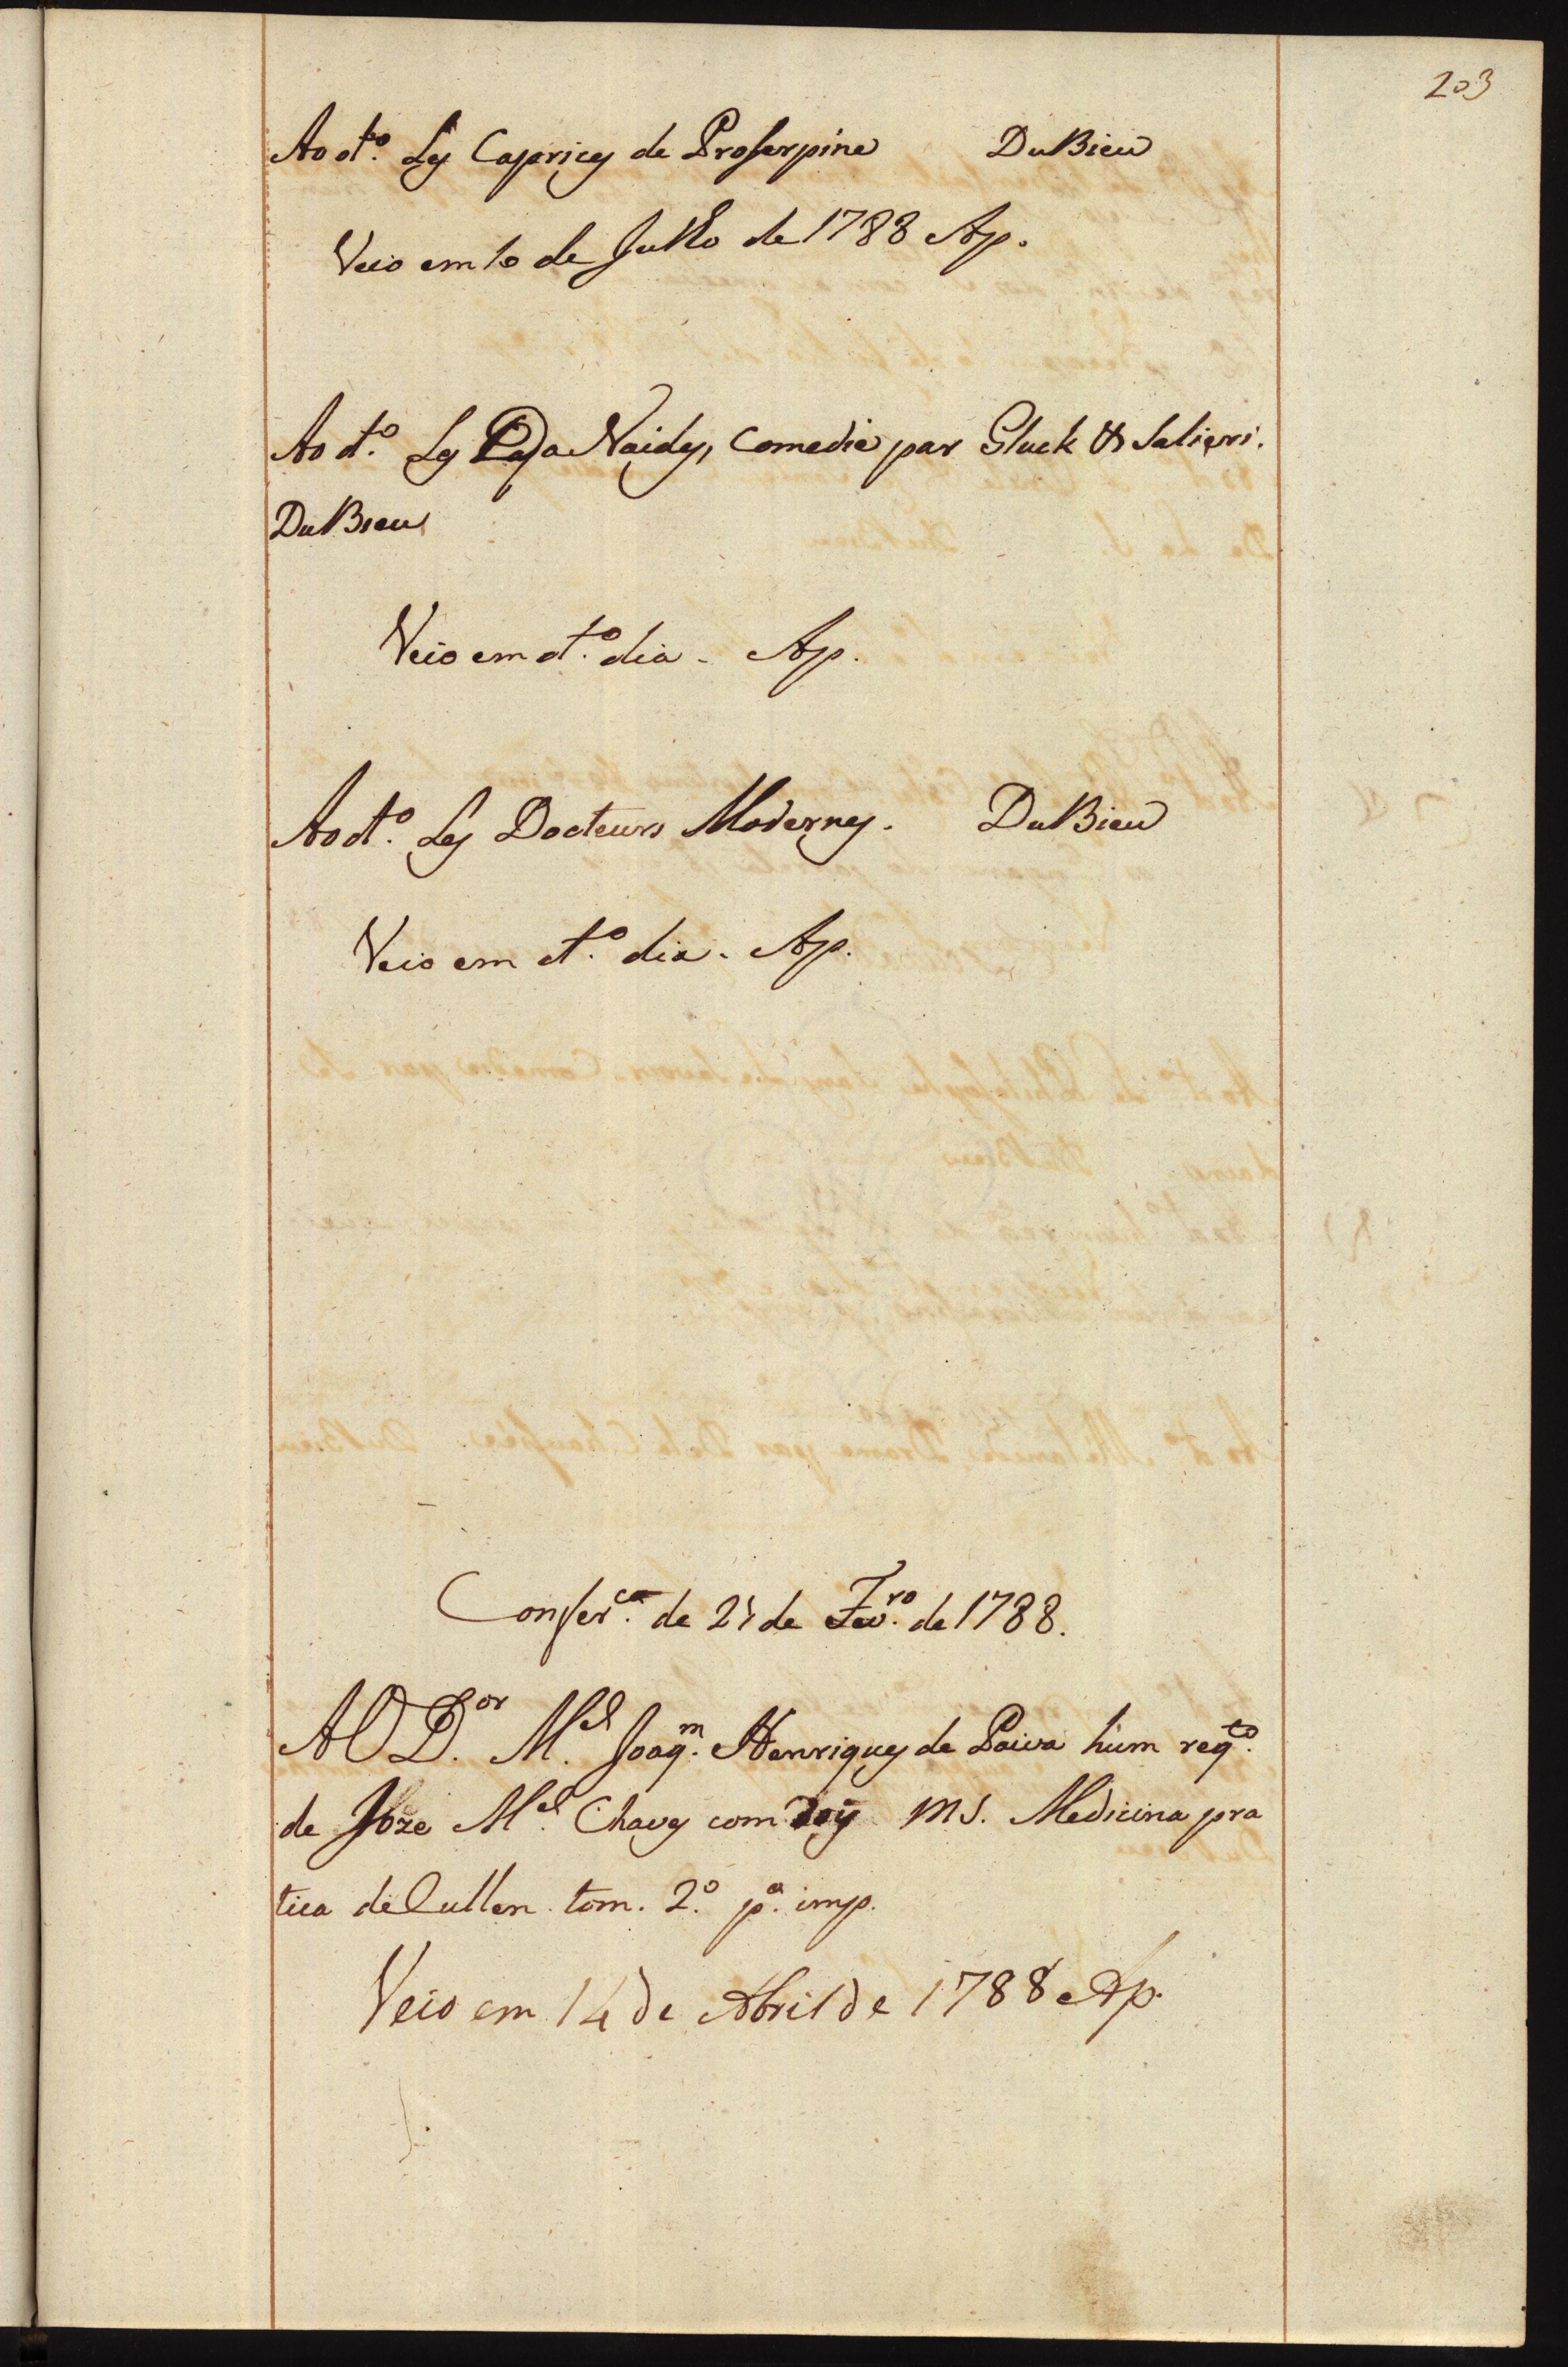 203
Ao dt.º Les Caprices de Proserpine DuBieu
Veio em 10 de Julho de 1788 Ap.
Ao dt.º Les DaNaides, Comedie par Gluck & Salieri.
DuBieu
Veio em dt.º dia. Ap.
Ao dt.º Les Docteurs Modernes. DuBieu
Veio em dt.º dia. Ap.
Confer.ca de 21 de Fev.ro de 1788.
AO D.or M.el Joaq.m Henriques de Paiva hum reqto.
de Joze M.el Chaves com MS. Medicina pra
tica de Cullen tom. 2.º p.a imp.
Veio em 14 de Abril de 1788 Ap.